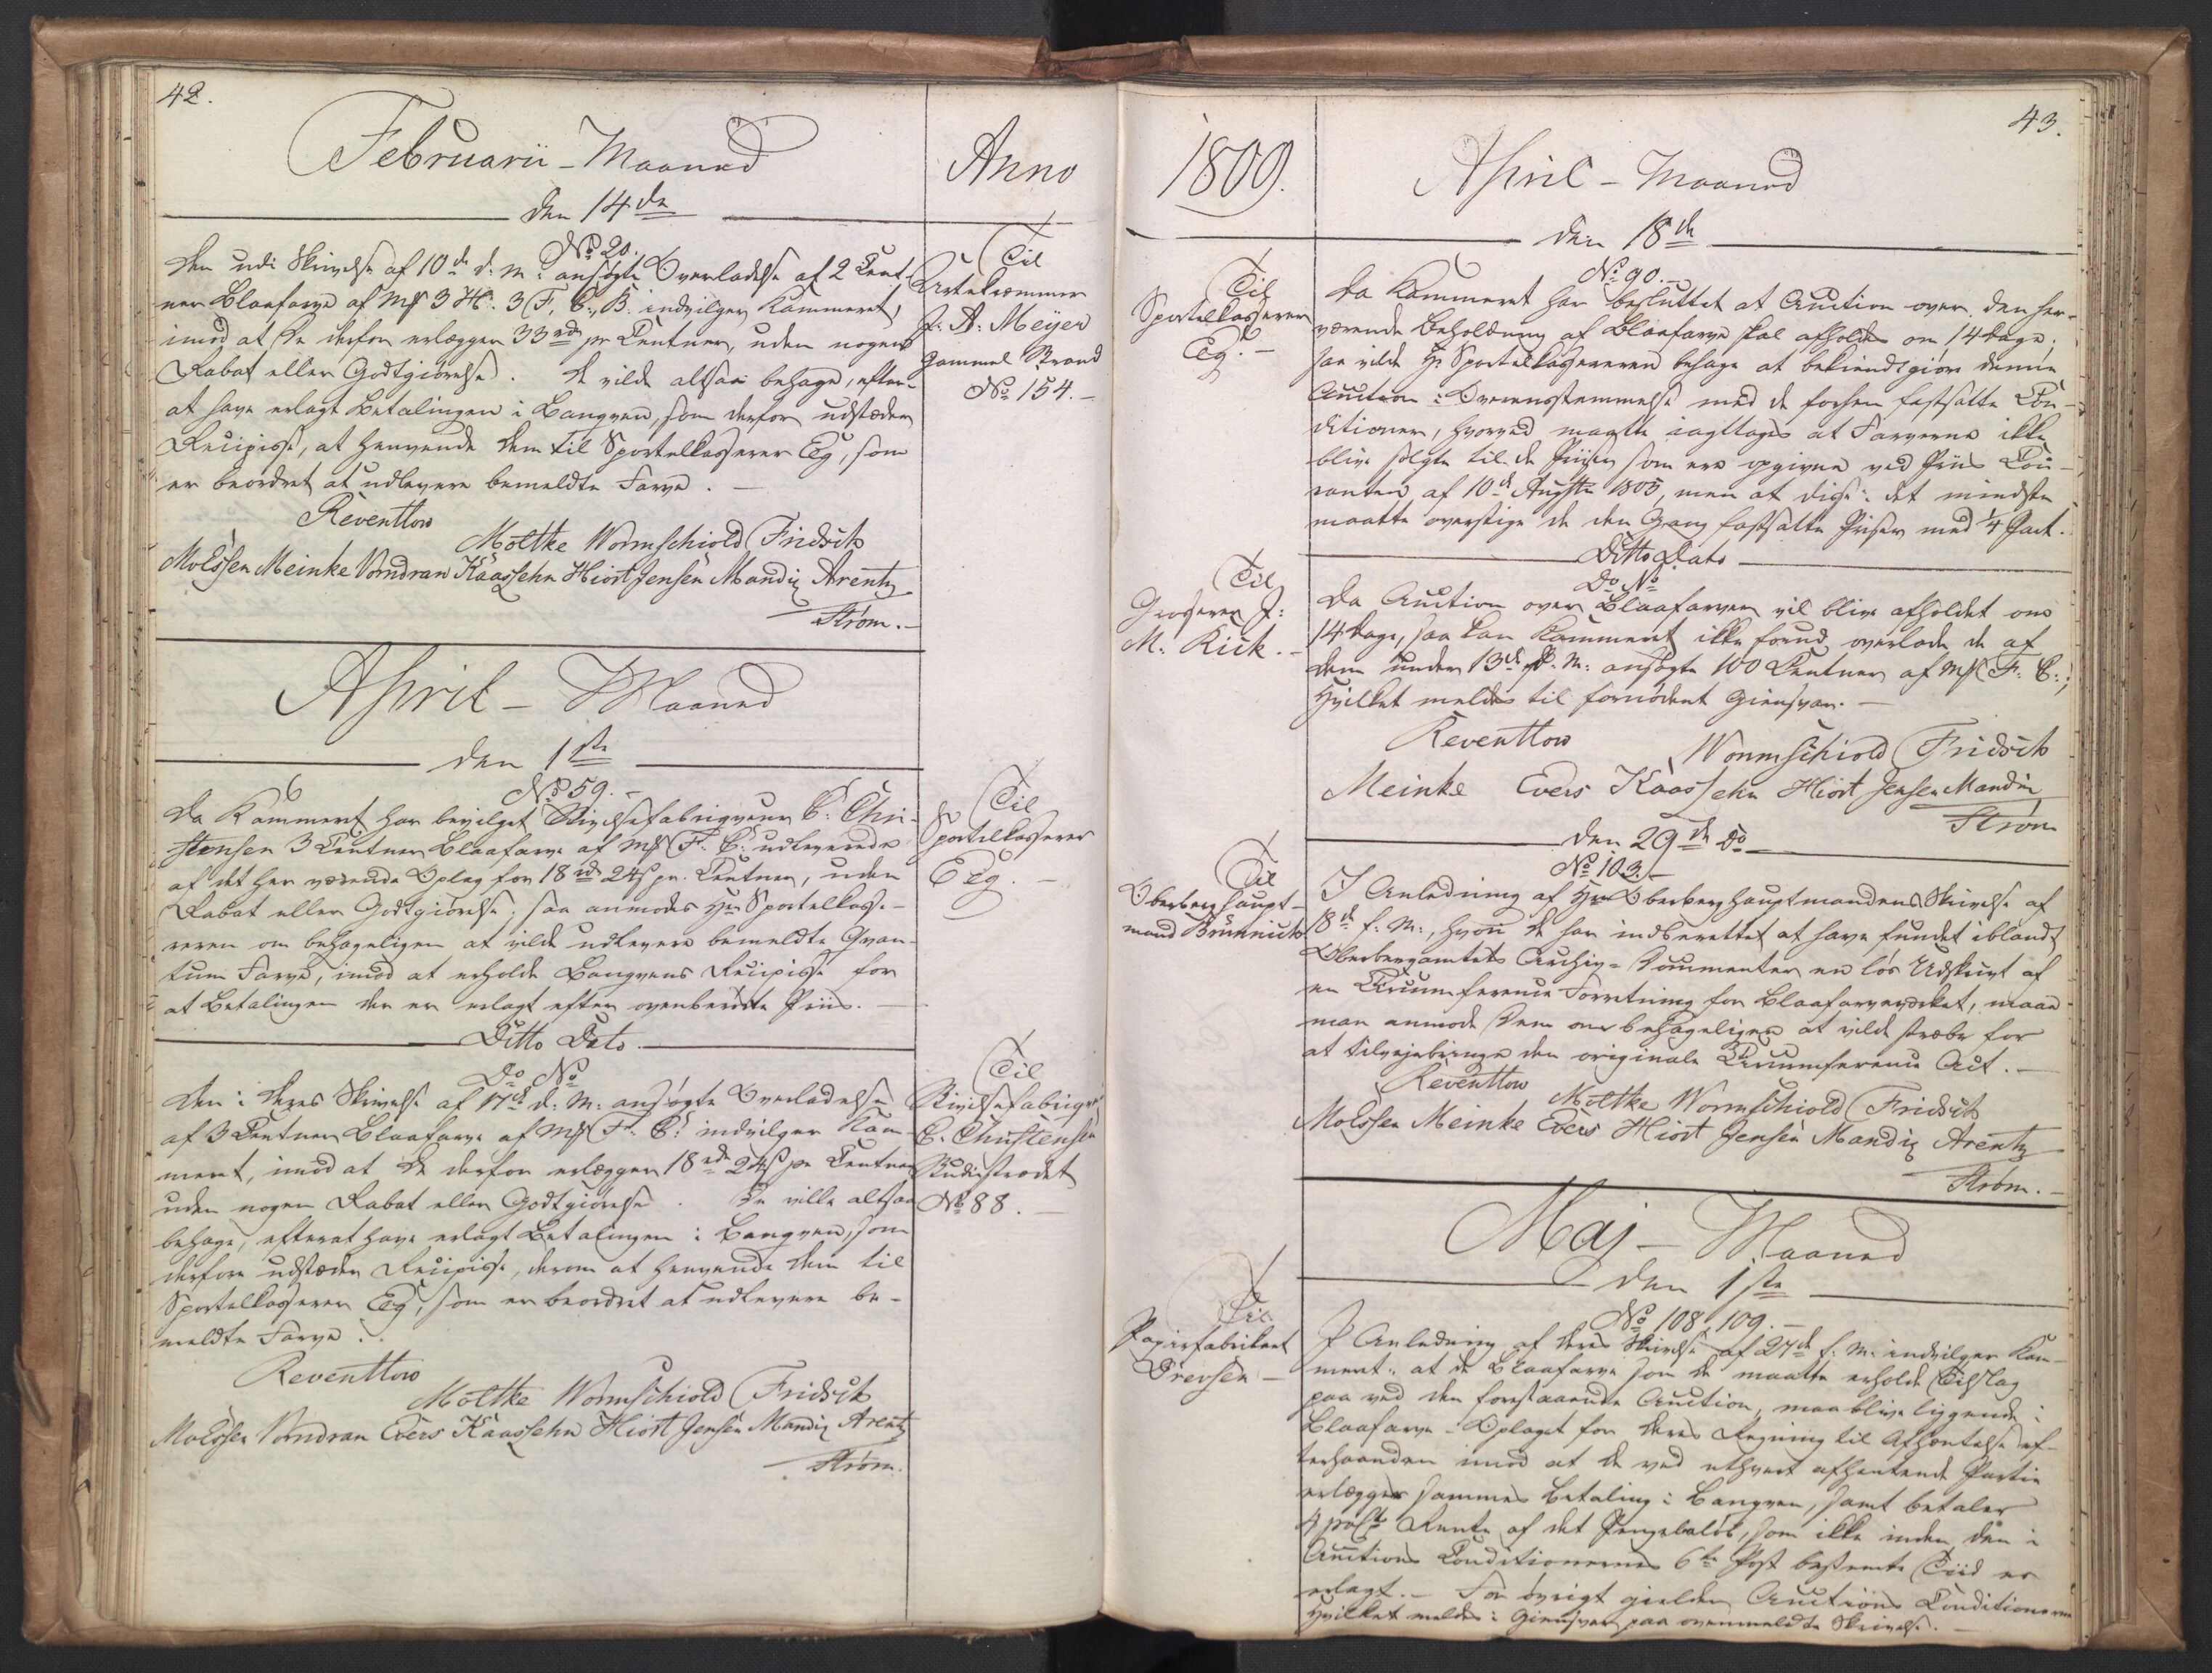 42.
Februarii - Maaned
Anno
den 14de
No 20.
Til
Urtekræmmer
J: A: Meÿer
Gammel Strand
No 154. -
Den udi Skrivelse af 10de d: M: ansøgte Overladelse af 2 Cent-
ner Blaafarve af Mk 3 H: 3 F, C:, B. indvilger Kammeret,
imod at De derfor erlægger 33 rd pr Centner, uden nogen
Rabat eller Godtgiørelse. De vilde altsaa behage, efter-
at have erlagt Betalingen i Banqven, som derfor udstæder
Recipisse, at henvende Dem til Sportelkasserer Eeg, som
er beordret at udlevere bemeldte Farve. -
Reventlow
Moltke Wormschiold Fridsch
Moëssen Meinke Vorndran Kaas Lehn Hiort Jensen Mandix Arentz
Strøm. -
April - Maaned
den 1ste
No 59. -
Til
Sportelkasserer
Eeg. -
Da Kammeret har bevilget Stivelsefabriqveur C: Chri-
stensen 3 Centner Blaafarve af Mk F: C: udleverede
af det her værende Oplag for 18 rd 24 s pr. Centner, uden
Rabat eller Godtgiørelse; saa anmodes Hr Sportelkasse-
reren om behageligen at vilde udlevere bemeldte Qvan-
tum Farve, imod at erholde Banqvens Recipisse for
at Betalingen der er erlagt efter ovenberørte Priis. -
Ditto Dato.
Do No
Til
Stivelsefabriqveur
C. Christensen
Studiistrædet
No 88. -
Den i Deres Skrivelse af 17de d: M: ansøgte Overladelse
af 3 Centner Blaafarve af Mk F. C: indvilger Kam-
meret, imod at De derfor erlægger 18 rd 24 s pr Centner
uden nogen Rabat eller Godtgiørelse. De ville altsaa
behage, efterat have erlagt Betalingen i Banqven, som
derfor udstæder Recipisse, derom at henvende Dem til
Sportelkasserer Eeg, som er beordret at udlevere be-
meldte Farve.
Reventlow
Moltke Wormschiold Fridsch
Moëssen Vorndran Evers Kaas Lehn Hiort Jensen Mandix Arentz
Strøm.
43.
1809.
April - Maaned
den 18de
No 90. -
Til
Sportelkasserer
Eeg. -
Da Kammeret har besluttet at Auction over den her-
værende Beholdning af Blaafarve skal afholdes om 14 Dage;
saa vilde Hr Sportelkassereren behage at bekiendtgiøre denne
Auction i Overensstemmelse med de forhen fastsatte Con-
ditioner, hvorved maatte iagttages at Farverne ikke
blive solgte til de Priser som ere opgivne ved Priis Cou-
ranten af 10de Augsti 1805, men at disse i det mindste
maatte overstige de den Gang fastsatte Priser med 1/4 Part.
Ditto Dato
Do No
Til
Grosserer J:
M. Kick. -
Da Auction over Blaafarven vil blive afholdet om
14 Dage, saa kan Kammeret ikke forud overlade de af
Dem under 13de d: M: ansøgte 100 Centner af Mk F: C:;
hvilket meldes til fornødent Giensvar. -
Reventlow
Wormschiold Fridsch
Meinke Evers Kaas Lehn Hiort Jensen Mandix
Strøm
den 29de do
No 103. -
Til
Oberberghaupt-
mand Brünnich
I Anledning af Hr Oberberghauptmandens Skrivelse af
18de f: M:, hvori De har indberettet at have fundet iblandt
Oberbergamtets Archiv-Documenter en løs Udskrivt af
en Circumference Forretning for Blaafarveværket, maae
man anmode Dem om behageligen at vilde stræbe for
at tilvejebringe den originale Circumference Act. -
Reventlow
Moltke Wormschiold Fridsch
Moëssen Meinke Evers Hiort Jensen Mandix Arentz
Strøm. -
Maj - Maaned
den 1ste
No 108, 109. -
Til
Papirfabrikant
Drevsen -
I Anledning af Deres Skrivelse af 27de f: M: indvilger Kam-
meret: at de Blaafarve som De maatte erholde Tilslag
paa ved den forestaaende Auction, maa blive liggende i
Blaafarve-Oplaget for Deres Regning til Afhæntelse ef-
terhaanden imod at De ved ethvert afhentende Partie
erlægger sammes Betaling i Banqven, samt betaler
4 proCt Rente af det Pengebeløb, som ikke inden den i
Auctions Conditionernes 6te Post bestemte Tiid er
erlagt. - For øvrigt gielder Auctions Conditionerne
hvilket meldes i Giensvar paa ovenmeldte Skrivelse. -